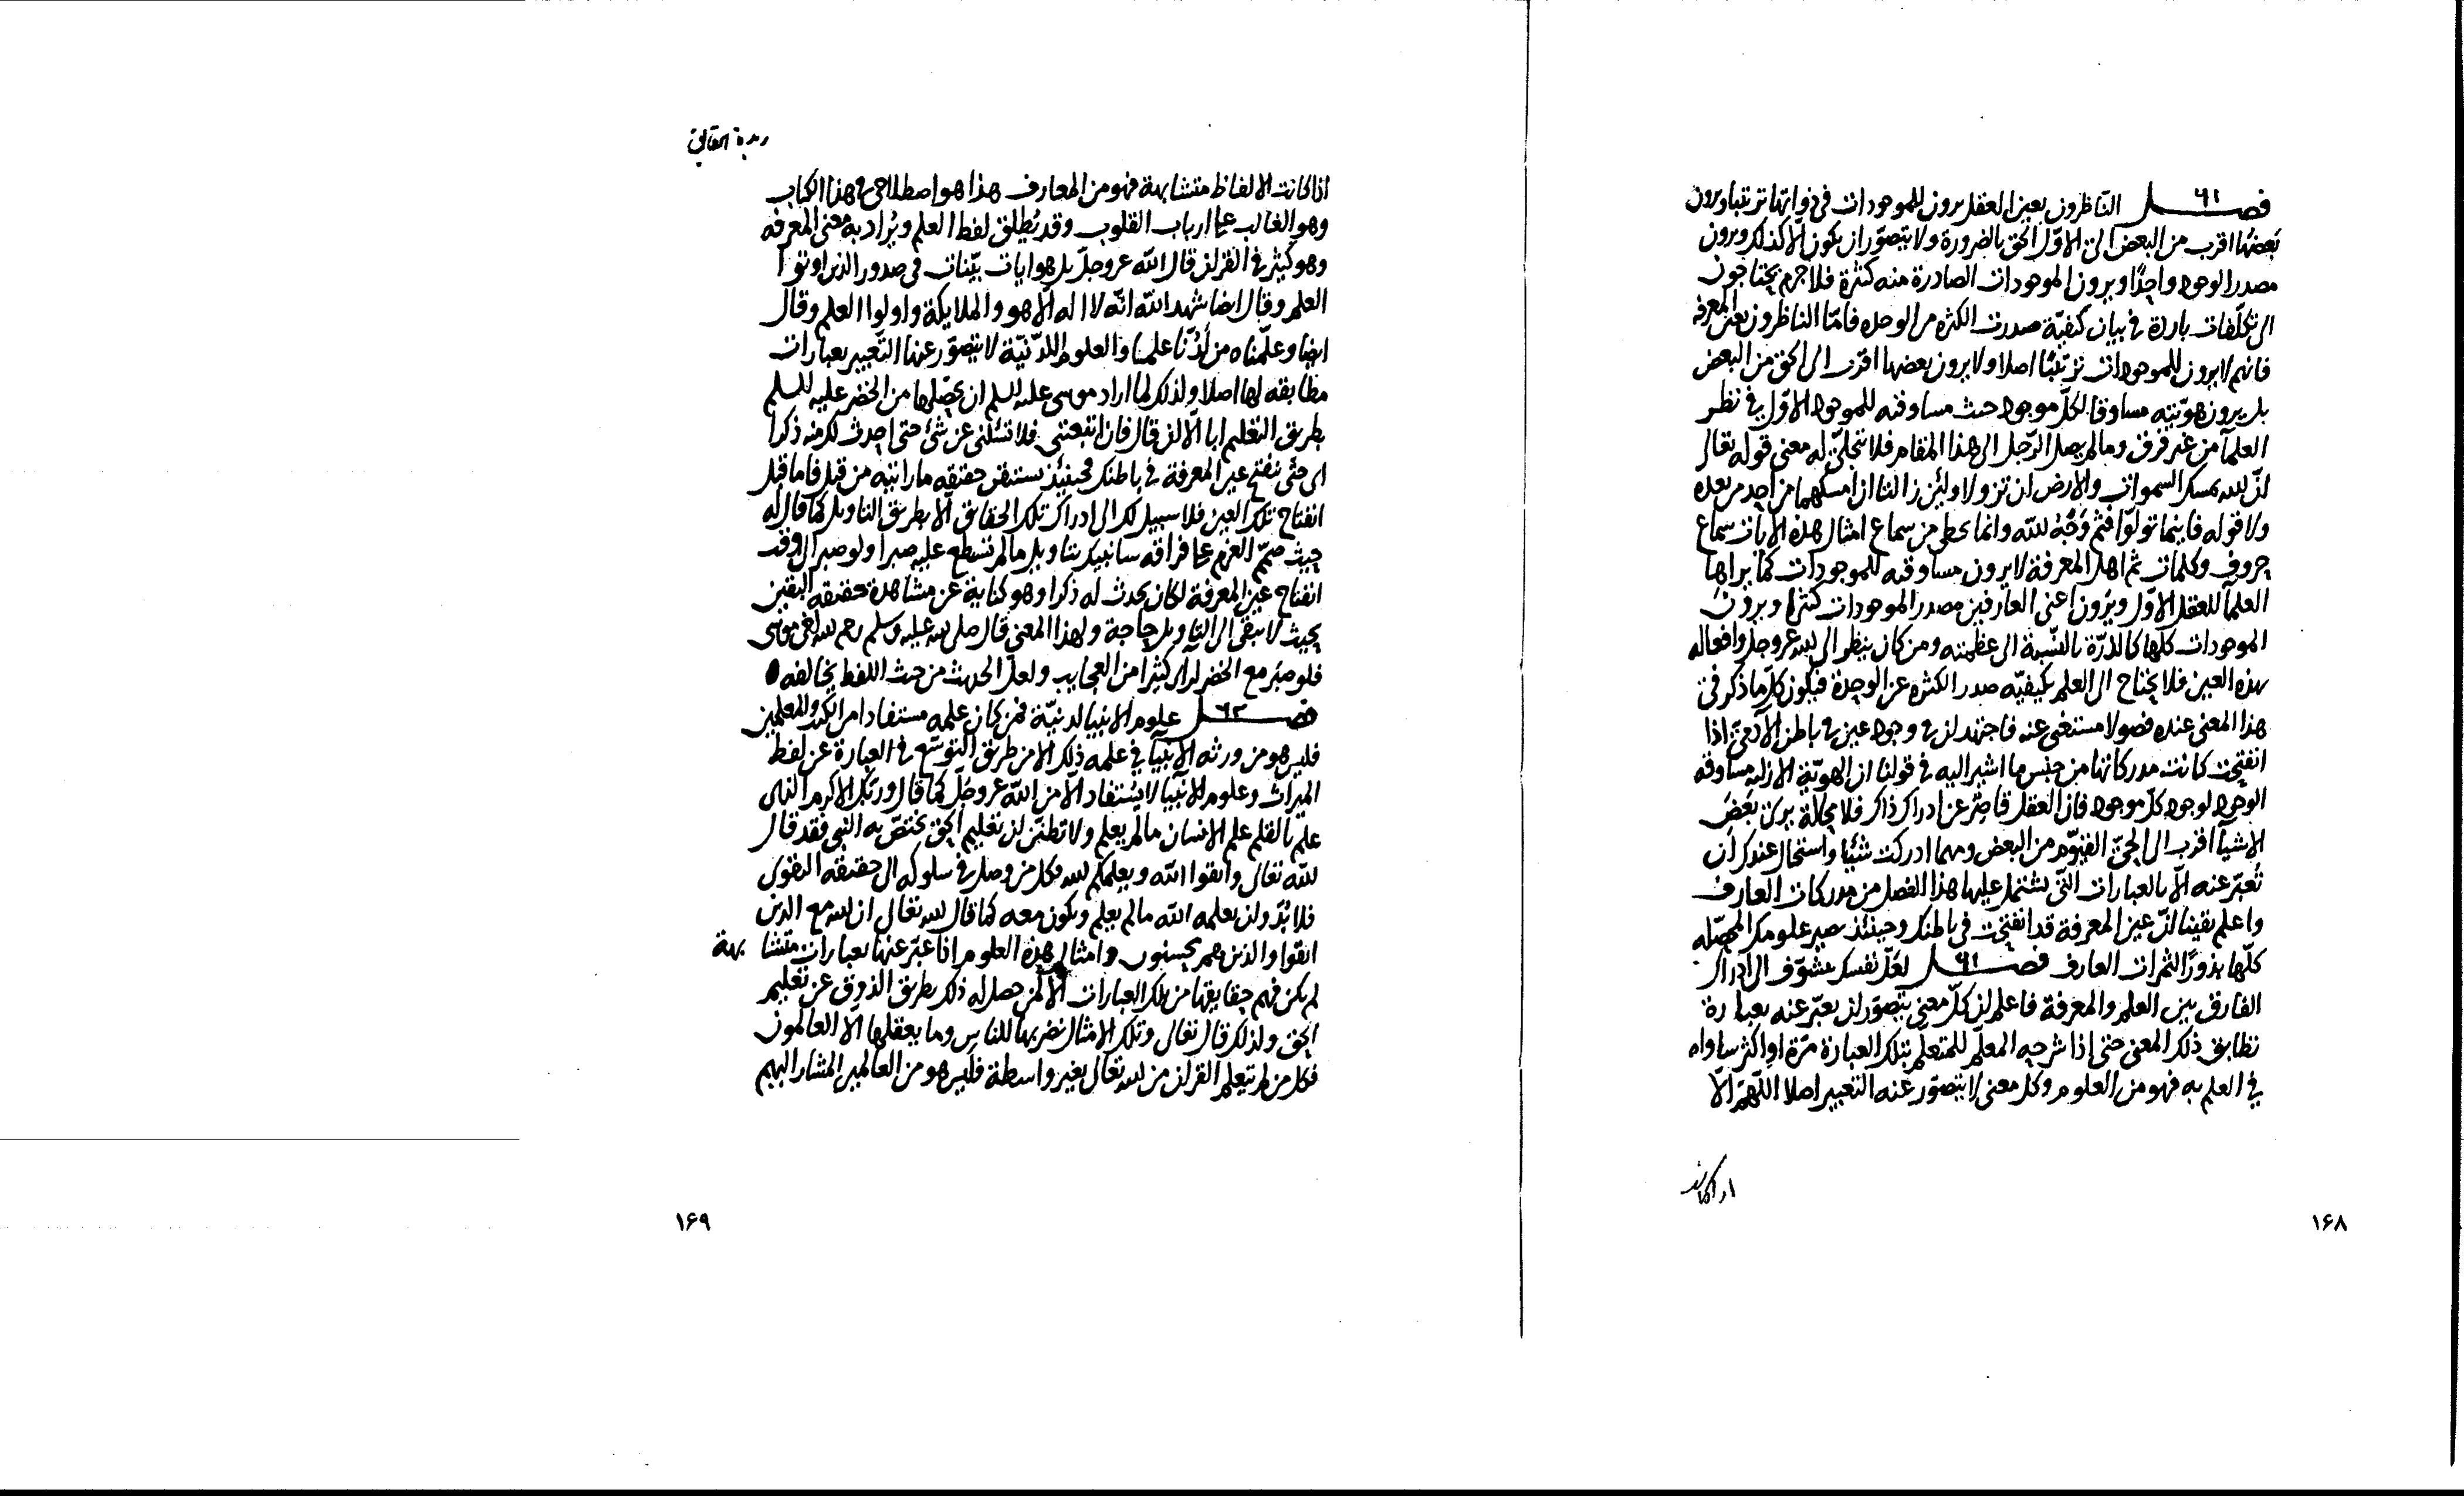 فصل ٦١ الناظرون بعين العقل يرون للموجودات في ذواتها ترتبا ويرون
بعضها اقرب من البعض الى الاوّل الحق بالضرورة ولا يتصوّر ان يكون الا كذلك ويرون
مصدر الوجود واحدًا ويرون الموجودات الصادرة منه كثرة فلا جرم يحتاجون
الى تكلّفات باردة في بيان كيفيّة صدرت الكثره من الوحده فامّا الناظرون بعين المعرفه
فانهم لا يرون للموجودات ترتيبًا اصلا ولا يرون بعضها اقرب الى الحق من البعض
بل يرون هويّته مساوقا لكلّ موجود حيث مساوقته للموجود الاوّل في نظر
العلمآ من غير فرق وما لم يصل الرّجل الى هذا المقام فلا تتجلّى له معنى قوله تعالى
انّ لله يمسك السموات والارض ان تزولا ولئن زالتا ان امسكهما من احد من بعده
ولا قوله فاينما تولوّا فثمّ وَجْهُ لله وانما يحظى من سماع امثال هذه الايات سماع
حروف وكلمات ثم اهل المعرفة لا يرون مساوقته للموجودات كما يراها
العلمآ للعقل الاوّل ويرون اعنى العارفين مصدر الموجودات كثيرا ويرون
الموجودات كلها كالذرّة بالنّسبة الى عظمته ومن كان ينظر الى لله عز وجل وافعاله
بهذه العين فلا يحتاج الى العلم بكيفيّه صدر الكثره عن الوحدة فيكون كلّ ما ذكر في
هذا المعنى عنده فضولا مستغنى عنه فاجتهد لن في وجود عين في باطن الآدمىّ اذا
انفتحت كانت مدركاتها من جنس ما اشير اليه في قولنا ان الهويّة الازليه مساوقه
الوجود لوجود كلّ موجود فان العقل قاصِرٌ عن ادراك ذاك فلا محالة يرى بَعضَ
الاشيآ اقرب الى الحىّ القيّوم من البعض ومهما ادركت شيئا واستحال عندك ان
تُعبّر عنه الّا بالعبارات التّى يشتمل عليها هذا الفصل من مدركات العارف
واعلم يقينا انّ عين المعرفة قد انفتحت في باطنك وحينئذ صير علومك المحصّله
كلّها بذورًا لثمرات العارف فصل ٦١ لعلّ نفسك يتشوّف الى ادراك
الفارق بين العلم والمعرفة فاعلم ان كلّ معنى يتصوّر لن يعبّر عنه بعبارة
تطابق ذلك المعنى حتى اذا شرحه المعلّم للمتعلّم بتلك العبارة مرّة او اكثر ساواه
في العلم به فهو من العلوم وكل معنى لا يتصوّر عنه التعبير اصلا اللّهمّ الّا
١۶٨
زبدة الحقائق
اذا كانت الالفاظ متشابهة فهو من المعارف هذا هو اصطلاحى في هذا الكتاب
وهو الغالب على ارباب القلوب وقد يُطلق لفظ العلم ويُراد به معنى المعرفه
وهو كثير في القرآن قال الله عز وجلّ بل هو ايات بيّنات في صدور الذين اوتوا
العلم وقال ايضا شهد الله انّه لا اله الّا هو والملايكة واولوا العلم وقال
ايضا وعلّمناه من لَدُنّا علما والعلوم اللدّنيّة لا يتصوّر عنها التّعبير بعبارات
مطابقه لها اصلا ولذلك لما اراد موسى عليه السلم ان يحصّلها من الخضر عليه السلم
بطريق التعليم ابا الّا ان قال فان اتبعتنى فلا تسئلنى عن شئ حتى احدث لك منه ذكرا
اى حتّى تفتح عين المعرفة في باطنك فحينئذ تستيقن حقيقه ما رايته من قبل فاما قبل
انفتاح تلك العين فلا سبيل لك الى ادراك تلك الحقائق الّا بطريق التاويل كما قال له
حيث صمّم العزم على فراقه سانبيك بتاويل ما لم تسطع عليه صبرا ولو صبر الى وقت
انفتاح عين المعرفة لكان يحدث له ذكرا وهو كناية عن مشاهدة حقيقه اليقين
بحيث لا يبقى الى التاويل حاجة ولهذا المعنى قال صلى لله عليه وسلم رحم لله اخى موسى
فلو صبر مع الخضر لراى كثيرا من العجايب ولعل الحديث من حيث اللفظ يخالفه
فصل ٦٢ علوم الانبيا لدنيّة فمن كان علمه مستفادا من الكتب والمعلمين
فليس هو من ورثه الانبيآ في علمه ذلك الا من طريق التوسّع في العبارة عن لفظ
الميراث وعلوم الانبيآ لا يُستفاد الّا من الله عز وجلّ كما قال وربّك الاكرم الذى
علم بالقلم علم الانسان ما لم يعلم ولا تظنّن لن تعليم الحق يختصّ به النبى فقد قال
لله تعالى واتقوا الله ويعلمكم لله فكل من وصل في سلوكه الى حقيقه التقوى
فلا بُدّ ولن يعلمه الله ما لم يعلم ويكون معه كما قال لله تعالى ان لله مع الذين
اتقوا والذين هم محسنون وامثال هذه العلوم اذا عبّر عنها بعبارات متشابهة
لم يكن فهم حقايقها من تلك العبارات الّا لمن حصل له ذلك بطريق الذوق عن تعليم
الحق ولذلك قال تعالى وتلك الامثال نضربها للناس وما يعقلها الّا العالمون
فكل من لم يتعلم القرآن من لله تعالى بغير واسطة فليس هو من العالمين المشار اليهم
١۶٩